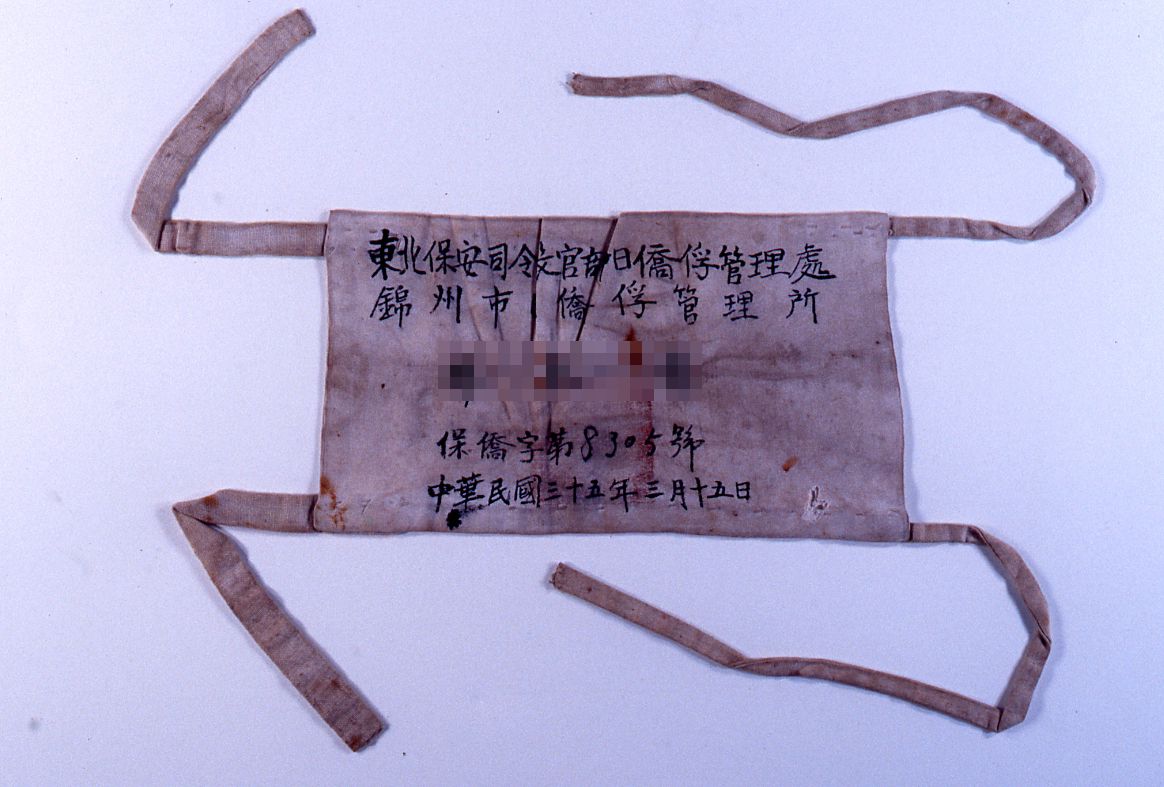 東北保安司令長官部日僑俘管理處
錦州市日僑俘管理所
保僑字第8305號
中華民國三十五年三月十五日